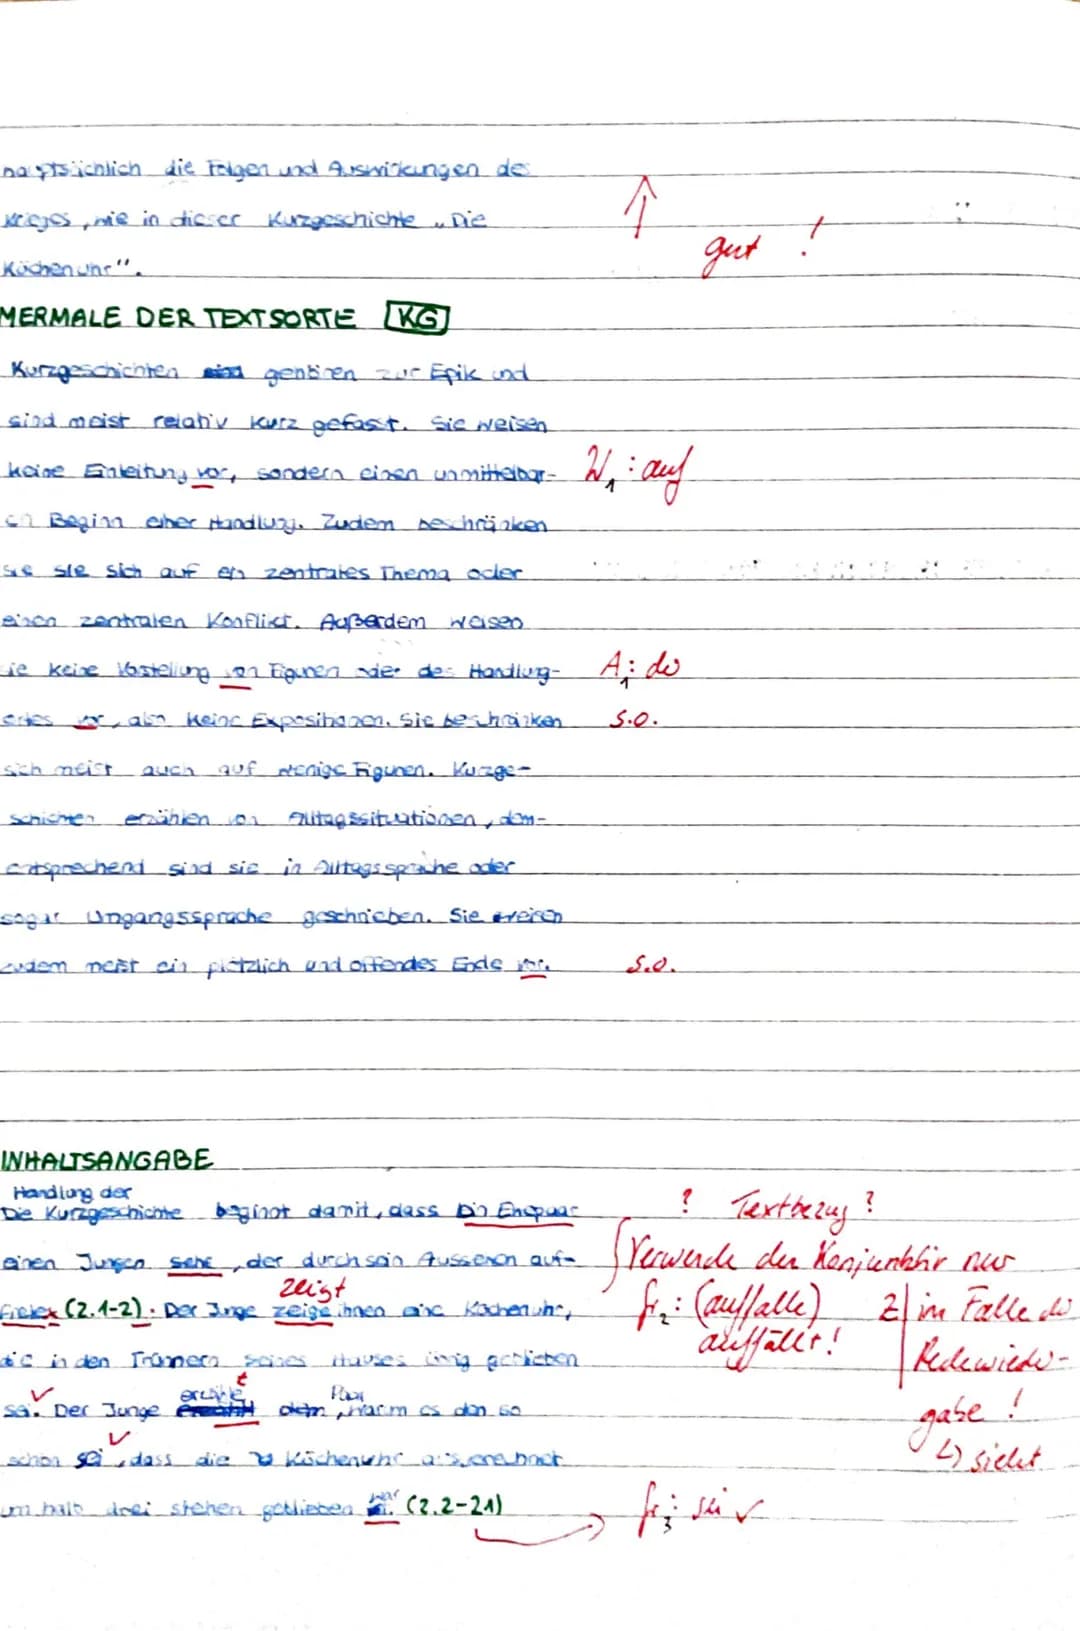 hauptsächlich die Folgen und Auswirkungen des
Krieges, wie in dieser Kurzgeschichte „Die
gut !
Küchenuhr".
MERMALE DER TEXTSORTE KG
Kurzgeschichten gehören zur Epik und
sind meist relativ kurz gefasst. Sie weisen
keine Einleitung vor, sondern einen unmittelbar- W1: auf
en Beginn einer Handlung. Zudem beschränken
sie sich auf ein zentrales Thema oder
einen zentralen Konflikt. Außerdem weisen
sie keine Vostellung von Figuren oder des Handlung- A1: der
ortes vor, also keine Expositionen. Sie beschränken s.o.
sich meist auch auf wenige Figuren. Kurzge-
schichten erzählen von Alltagssituationen, dem-
entsprechend sind sie in Alltagssprache oder
sogar Umgangssprache geschrieben. Sie weisen
zudem meist ein plötzlich und offendes Ende vor. s.o.
INHALTSANGABE
Handlung der
Die Kurzgeschichte beginnt damit, dass Ehepaar ? Textbezug ?
einen Jungen sehe, der durch sein Ausseren auf- Verwende den Konjunktiv nur
zeigt
(Z.1-2). Der Junge zeige ihnen eine Küchenuhr, fr2: (auffalle) Z im Falle der
auffällt!
die in den Trümmern seines Hauses übrig geblieben Redewieder-
erzähle t Paar
sei. Der Junge dem, warum es denn so gabe !
schön sei, dass die Küchenuhr ausgerechnet ↳ sieht
war
um halb drei stehen geblieben (Z.2-21) fr3: sei ✓